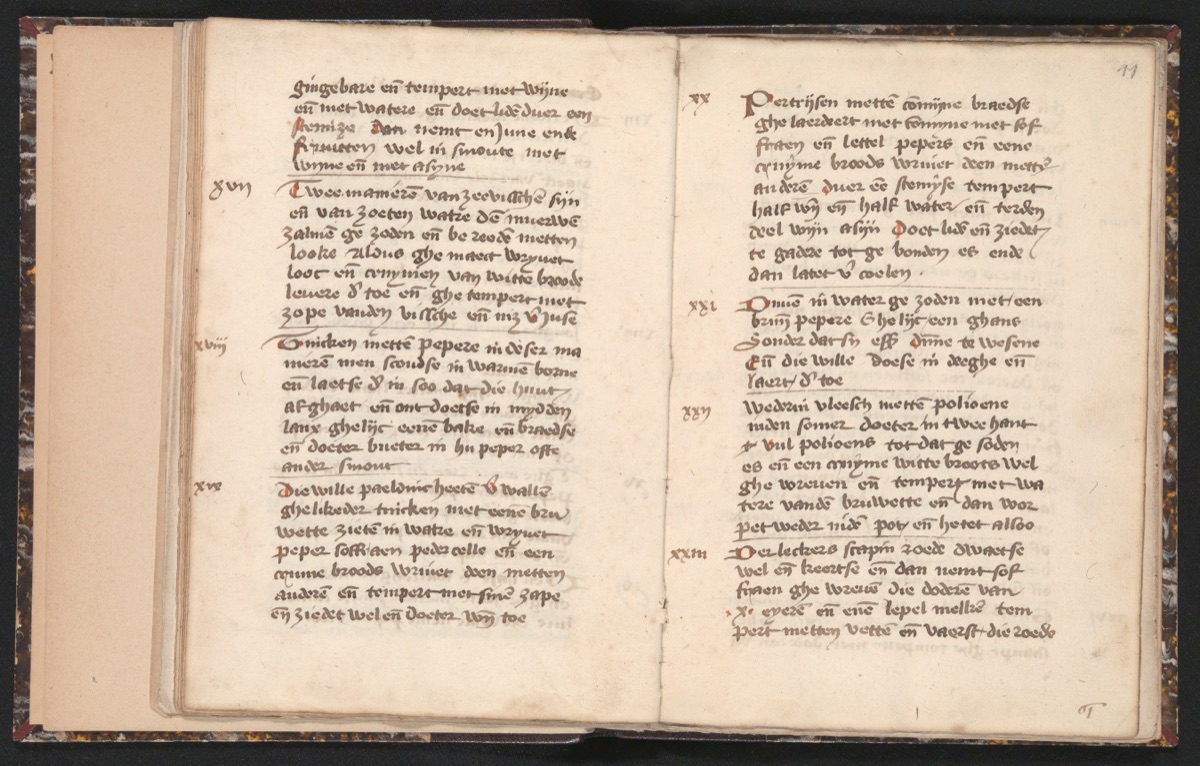 gingebare en̄ tempert met wyne
en̄ met watere en̄ doet lidē duer een
stemize dan nemt enJune ende
fruuitten wel in smoute met
wyne en̄ met asyne
xvii
Twee manieren van zeevisschē syn
en̄ van zoeten watre dē
zalmē ge zoden en̄ be reedē metten
looke Aldus ghe maect wryuet
looc en̄ crumen van witte broode
leuere d' toe en̄ ghe tempert met
zope vanden vissche en̄ v'iuse
xviii
Snicken mettē pepere in deser ma
nieren men scoudse in warme borne
en̄ laetse d' in soo dat die huut
af ghaet en̄ ont doetse in mydden
lanx ghelijc eenē bake en̄ braedse
en̄ doeter bueter in hu peper ofte
ander smout
xix
Die wille paeldinc heetē v' wallē
ghelikeder snicken met eene bru
wette zietē in watre en̄ wryuet
peper soffraen pedercelle en̄ een
crume broods wriuet deen metten
anderē en̄ tempert met sinē zape
en̄ ziedet wel en̄ doeter wyn toe
41
xx
Pertrijsen mettē comyne braedse
ghe laerdeert met comyne met sof
fraen en̄ lettel pepers en̄ eene
crūyme broods wriuet deen mettē
anderē duer eē stemyse tempert
half wyn en̄ half water en̄ terden
deel wyn asyn Doet lidē en̄ ziedet
te gadere tot ge bonden es ende
dan latet v' coelen
xxi
in water ge zoden met een
bruyn pepere Ghelijc een ghans
Sonder dat sy dūne te wesene
En̄ die wille doese in deeghe en̄
laert d' toe
xxii
Wederin vleesch mettē polioene
inden somer doeter in twee hant
vul polioens tot dat ge soden
es en̄ een crūyme witte broots wel
ghe wreuen en̄ tempert met wa
tere vandē bruwette en̄ dan wor
pet weder indē pot en̄ hetet alsoo
xxiii
Der leckers scapin roede dwaetse
wel en̄ keertse en̄ dan nemt sof
fraen ghe wreuē die doderē van
·x· eyerē en̄ enē lepel melkē tem
pert metten vettē en̄ vaerst die roede